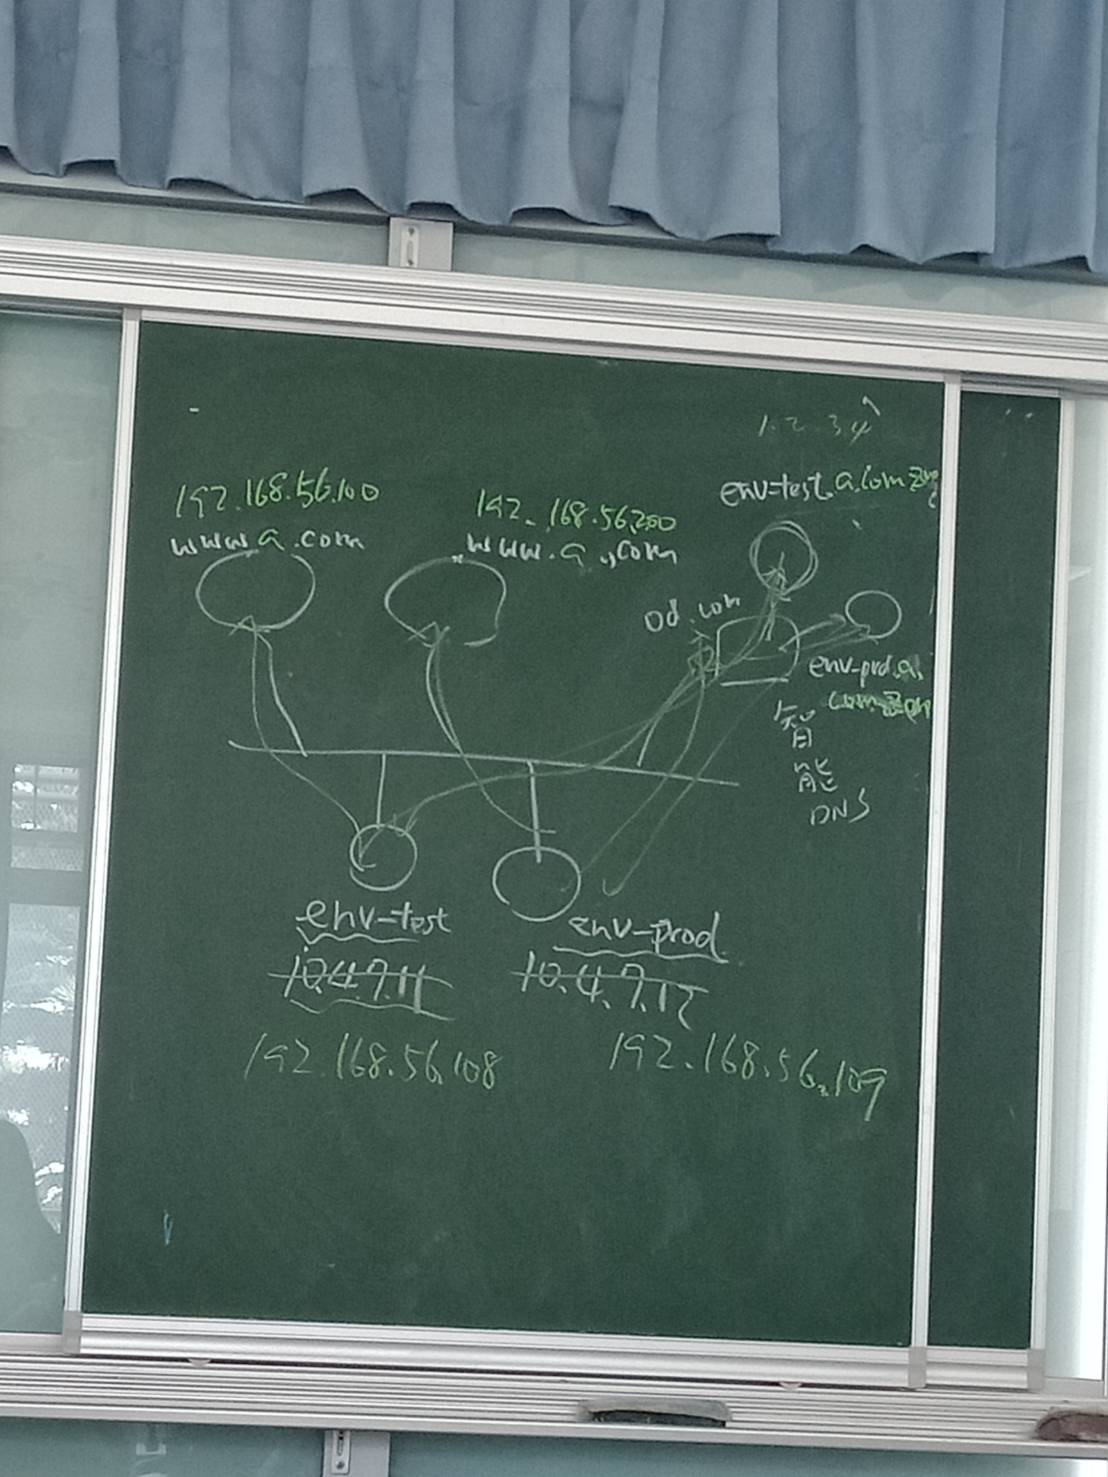 1.2.3.4
192.168.56.100
www.a.com
192.168.56.200
www.a.com
env-test.a.com.zone
od.com
env-prd.a.
com.zon
智
能
DNS
env-test
10.4.7.11
192.168.56.108
env-prod
10.4.7.12
192.168.56.109